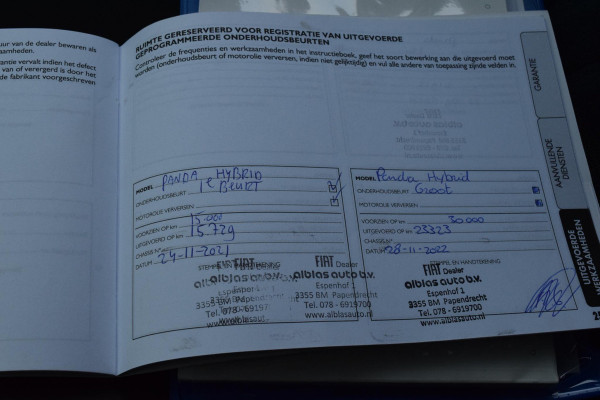 uur van de dealer bewaren als
aamheden.
antie vervalt indien het defect
van of verergerd is door het
de fabrikant voorgeschreven
RUIMTE GERESERVEERD VOOR REGISTRATIE VAN UITGEVOERDE
GEPROGRAMMEERDE ONDERHOUDSBEURTEN
Controleer de frequenties en werkzaamheden in het instructieboek, geef het soort bewerking aan die uitgevoerd moet
worden (onderhoudsbeurt of motorolie verversen, indien niet gelijktijdig) en vul alle andere van toepassing zijnde velden in.
GARANTIE
AANVULLENDE
DIENSTEN
UITGEVOERDE
WERKZAAMHEDEN
MODEL PANDA HYBRID
1e BEURT
ONDERHOUDSBEURT
MOTOROLIE VERVERSEN
VOORZIEN OP km 15.000
UITGEVOERD OP km 15.729
CHASSIS N°
DATUM 24-11-2021
STEMPEL EN HANDTEKENING
FIAT
Dealer
alblasautob.v.
Espenhof 1
3355 BM Papendrecht
Tel. 078 - 6919700
www.alblasauto.nl
MODEL Panda Hybrid
ONDERHOUDSBEURT Groot
MOTOROLIE VERVERSEN
VOORZIEN OP km 30.000
UITGEVOERD OP km 23323
CHASSIS N°
DATUM 28-11-2022
STEMPEL EN HANDTEKENING
FIAT
Dealer
alblasautob.v.
Espenhof 1
3355 BM Papendrecht
Tel. 078 - 6919700
www.alblasauto.nl